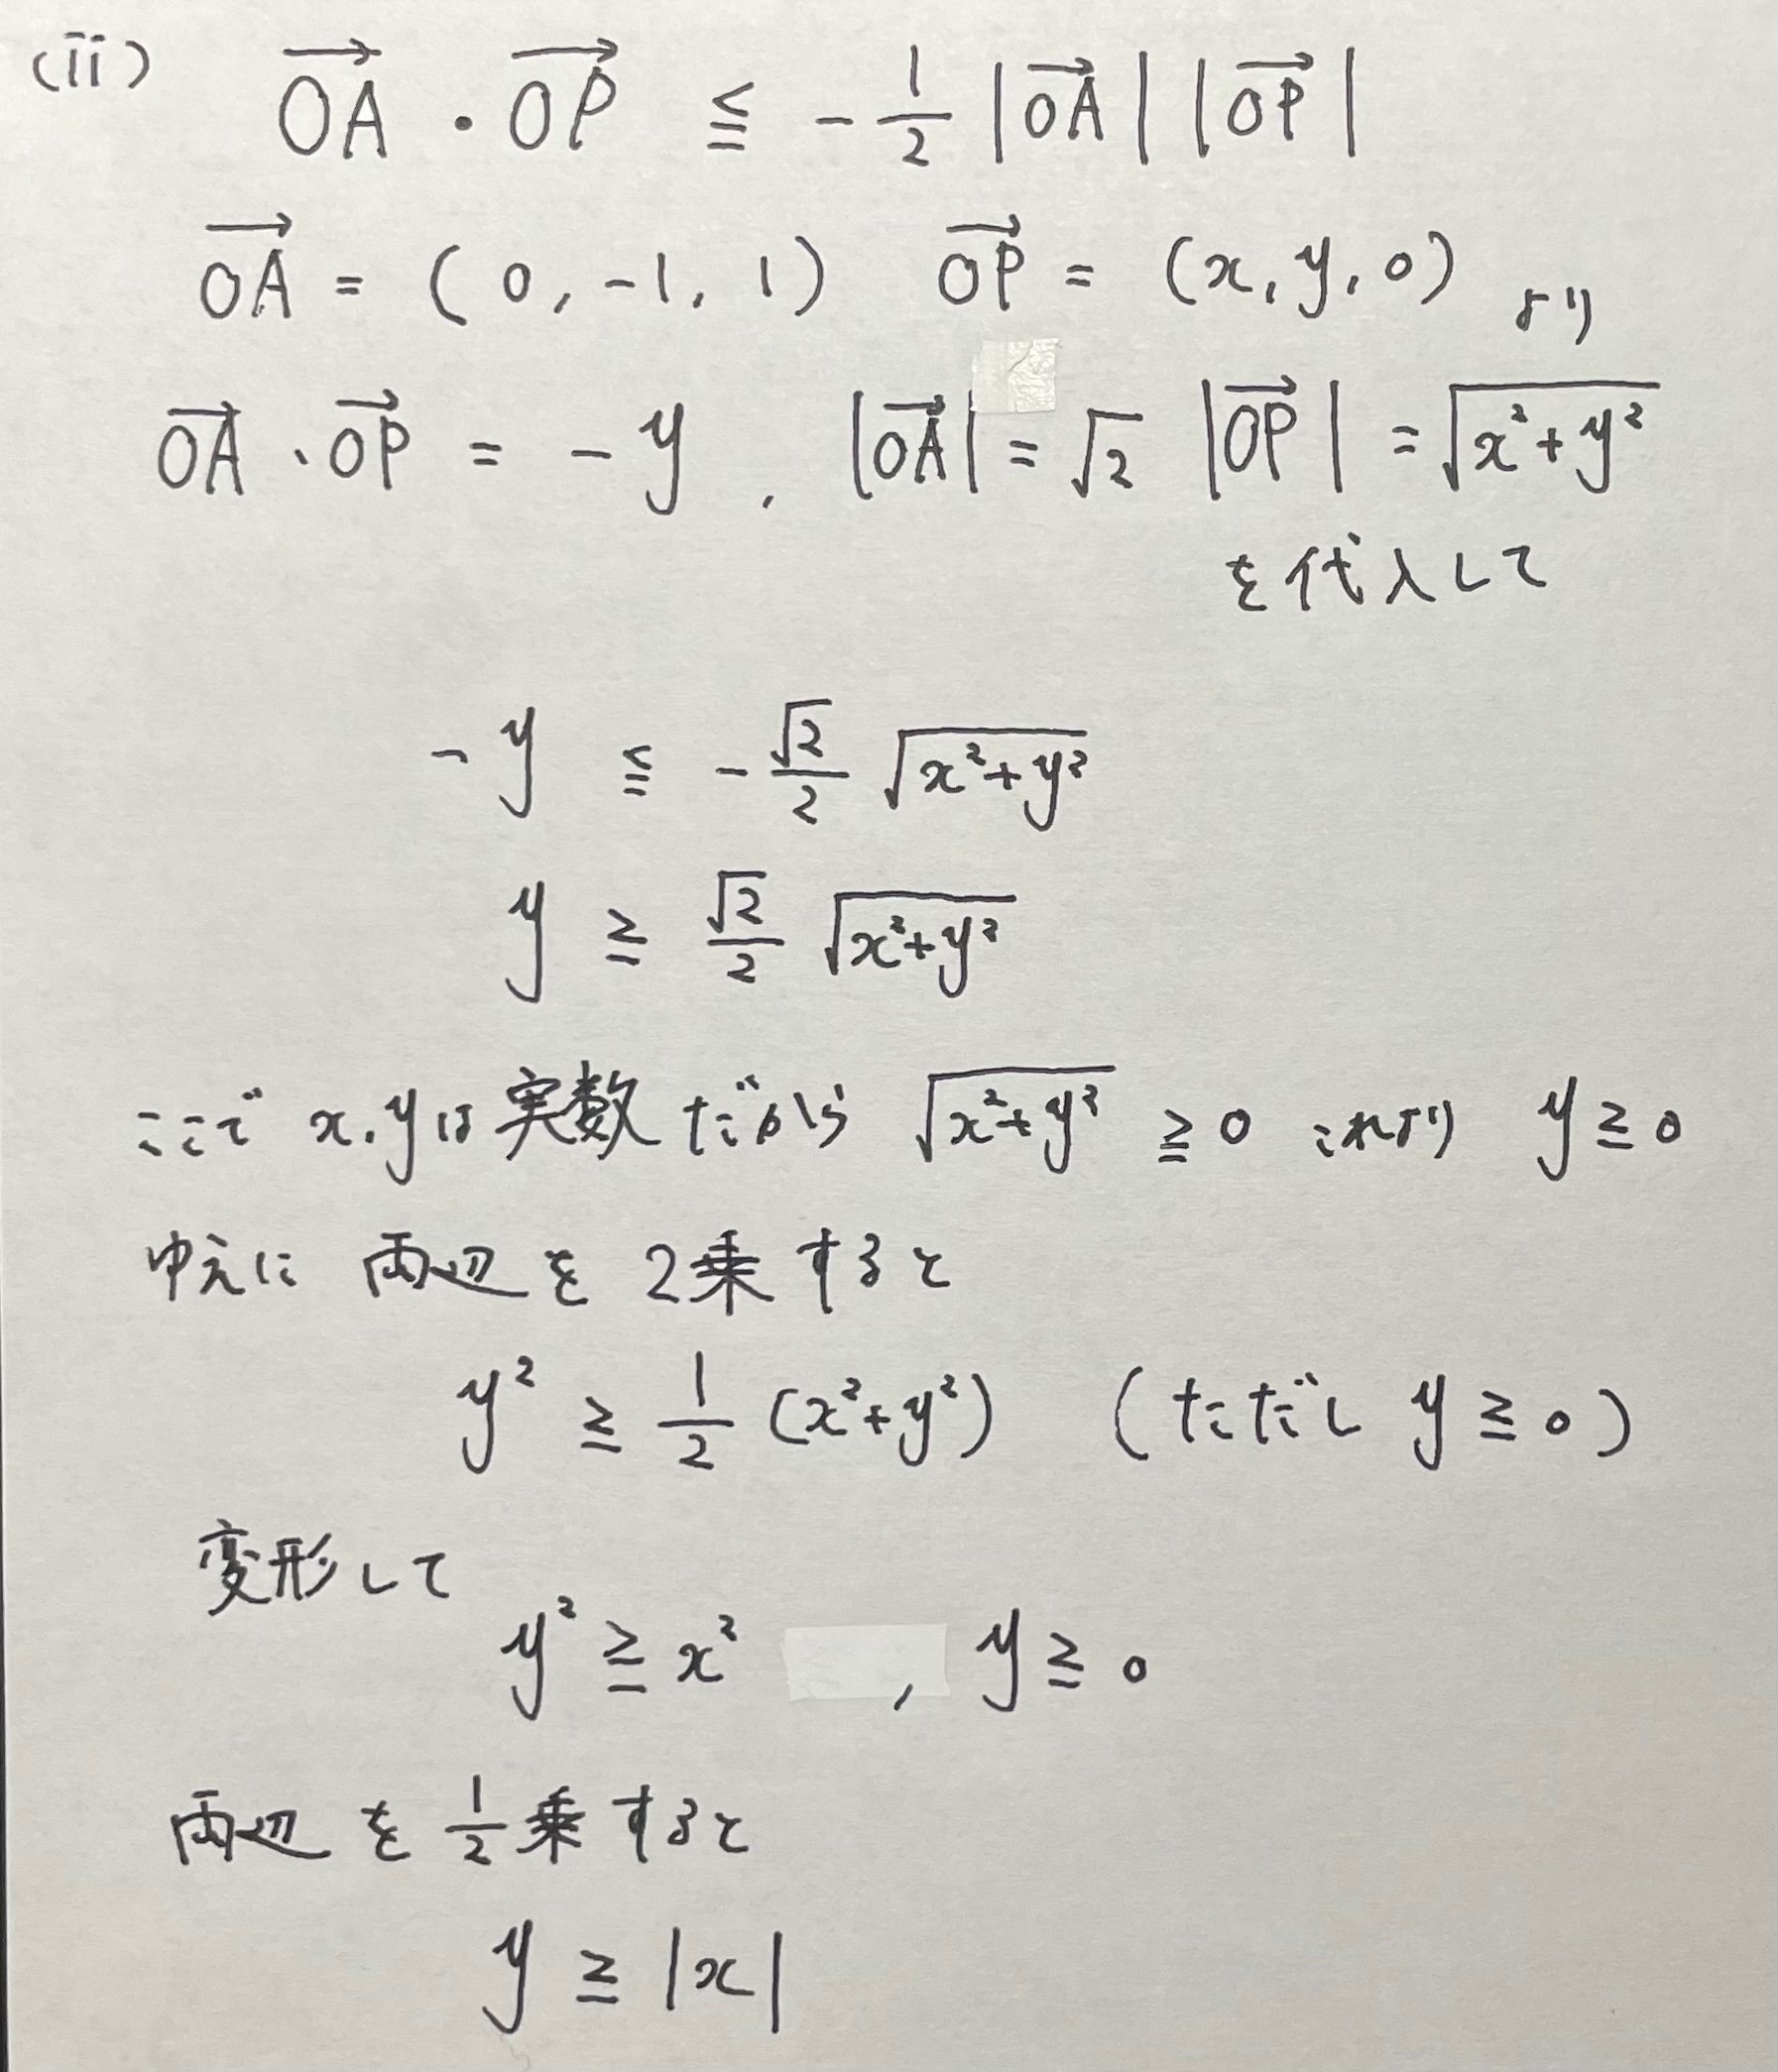 (ii) $\overrightarrow{OA} \cdot \overrightarrow{OP} \leqq -\frac{1}{2} |\overrightarrow{OA}| |\overrightarrow{OP}|$
$\overrightarrow{OA} = (0, -1, 1)$ $\overrightarrow{OP} = (x, y, 0)$ より
$\overrightarrow{OA} \cdot \overrightarrow{OP} = -y$ , $|\overrightarrow{OA}| = \sqrt{2}$ $|\overrightarrow{OP}| = \sqrt{x^2+y^2}$
を代入して
$-y \leqq -\frac{\sqrt{2}}{2} \sqrt{x^2+y^2}$
$y \geqq \frac{\sqrt{2}}{2} \sqrt{x^2+y^2}$
ここで x, yは実数だから $\sqrt{x^2+y^2} \geqq 0$ これより $y \geqq 0$
ゆえに 両辺を2乗すると
$y^2 \geqq \frac{1}{2} (x^2+y^2)$ (ただし $y \geqq 0$)
変形して
$y^2 \geqq x^2$ , $y \geqq 0$
両辺を $\frac{1}{2}$ 乗すると
$y \geqq |x|$